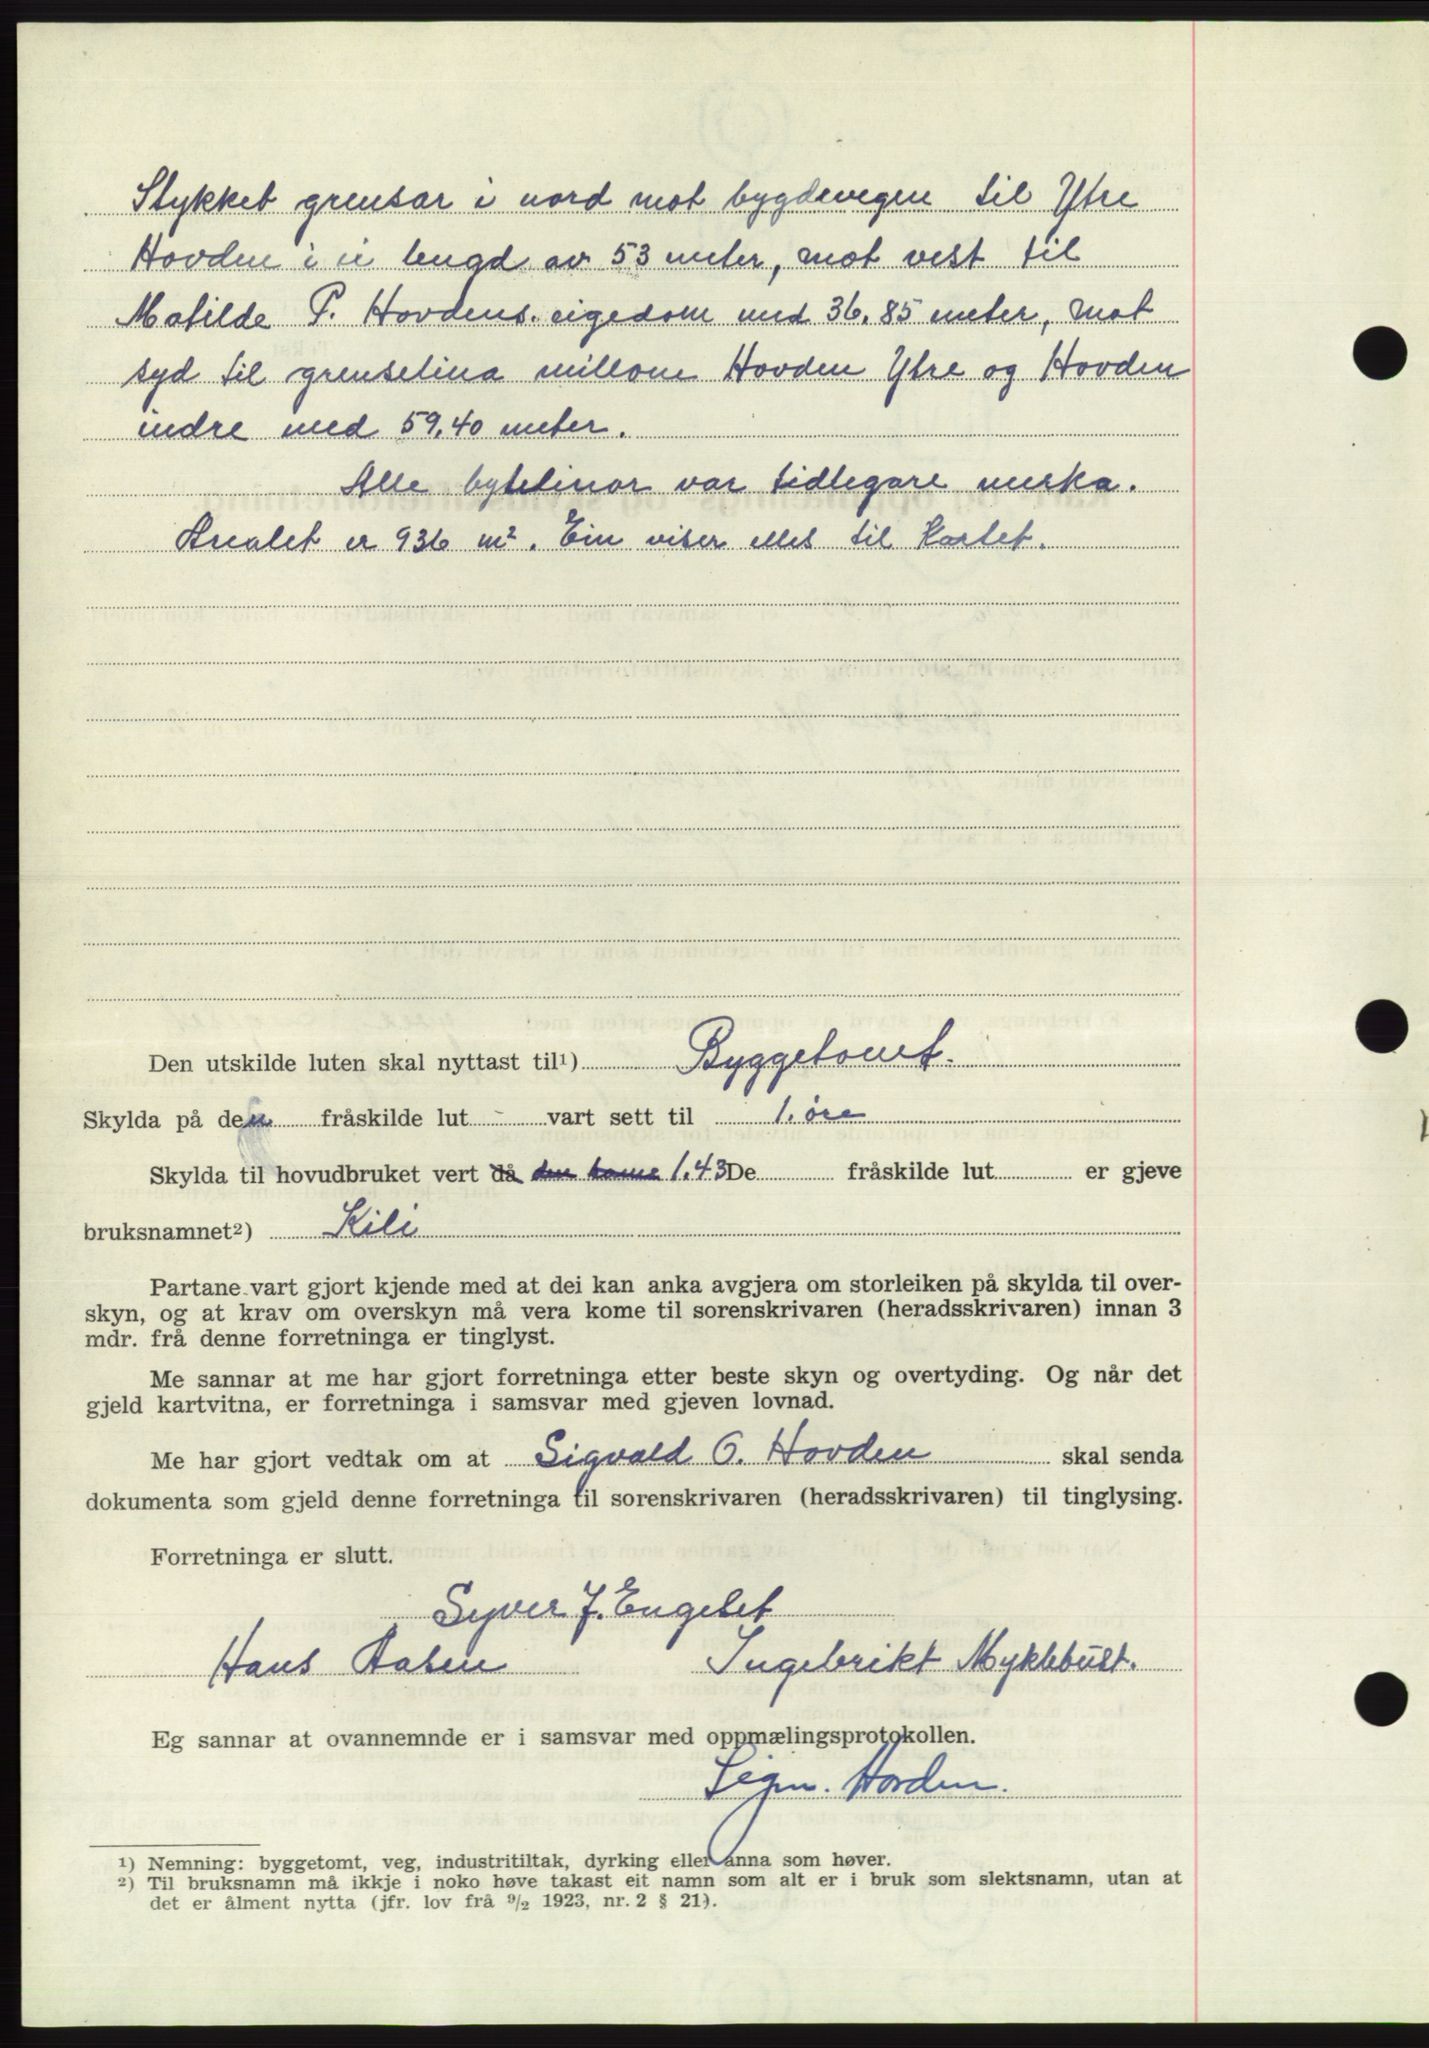 Stykket grensar i nord mot bygdavegen til Ytre
Hovden i ei lengd av 53 meter, mot vest til
Matilde P. Hovdens eigedom med 36.85 meter, mot
syd til grenselina millom Hovden Ytre og Hovden
indre med 59.40 meter.
Alle bytelinor var tidlegare merka.
Arealet er 936 m². Ein viser elles til Kartet.
Den utskilde luten skal nyttast til¹) Byggetomt.
Skylda på den fråskilde lut vart sett til 1. øre
Skylda til hovudbruket vert då 1.43 De fråskilde lut er gjeve
bruksnamnet²) Kili
Partane vart gjort kjende med at dei kan anka avgjera om storleiken på skylda til over-
skyn, og at krav om overskyn må vera kome til sorenskrivaren (heradsskrivaren) innan 3
mdr. frå denne forretninga er tinglyst.
Me sannar at me har gjort forretninga etter beste skyn og overtyding. Og når det
gjeld kartvitna, er forretninga i samsvar med gjeven lovnad.
Me har gjort vedtak om at Sigvald O. Hovden skal senda
dokumenta som gjeld denne forretninga til sorenskrivaren (heradsskrivaren) til tinglysing.
Forretninga er slutt.
Syver J. Engeset
Hans Aasen Ingebrikt Myklebust.
Eg sannar at ovannemnde er i samsvar med oppmælingsprotokollen.
Sigm. Hovden.
1) Nemning: byggetomt, veg, industritiltak, dyrking eller anna som høver.
2) Til bruksnamn må ikkje i noko høve takast eit namn som alt er i bruk som slektsnamn, utan at
det er ålment nytta (jfr. lov frå 9/2 1923, nr. 2 § 21).